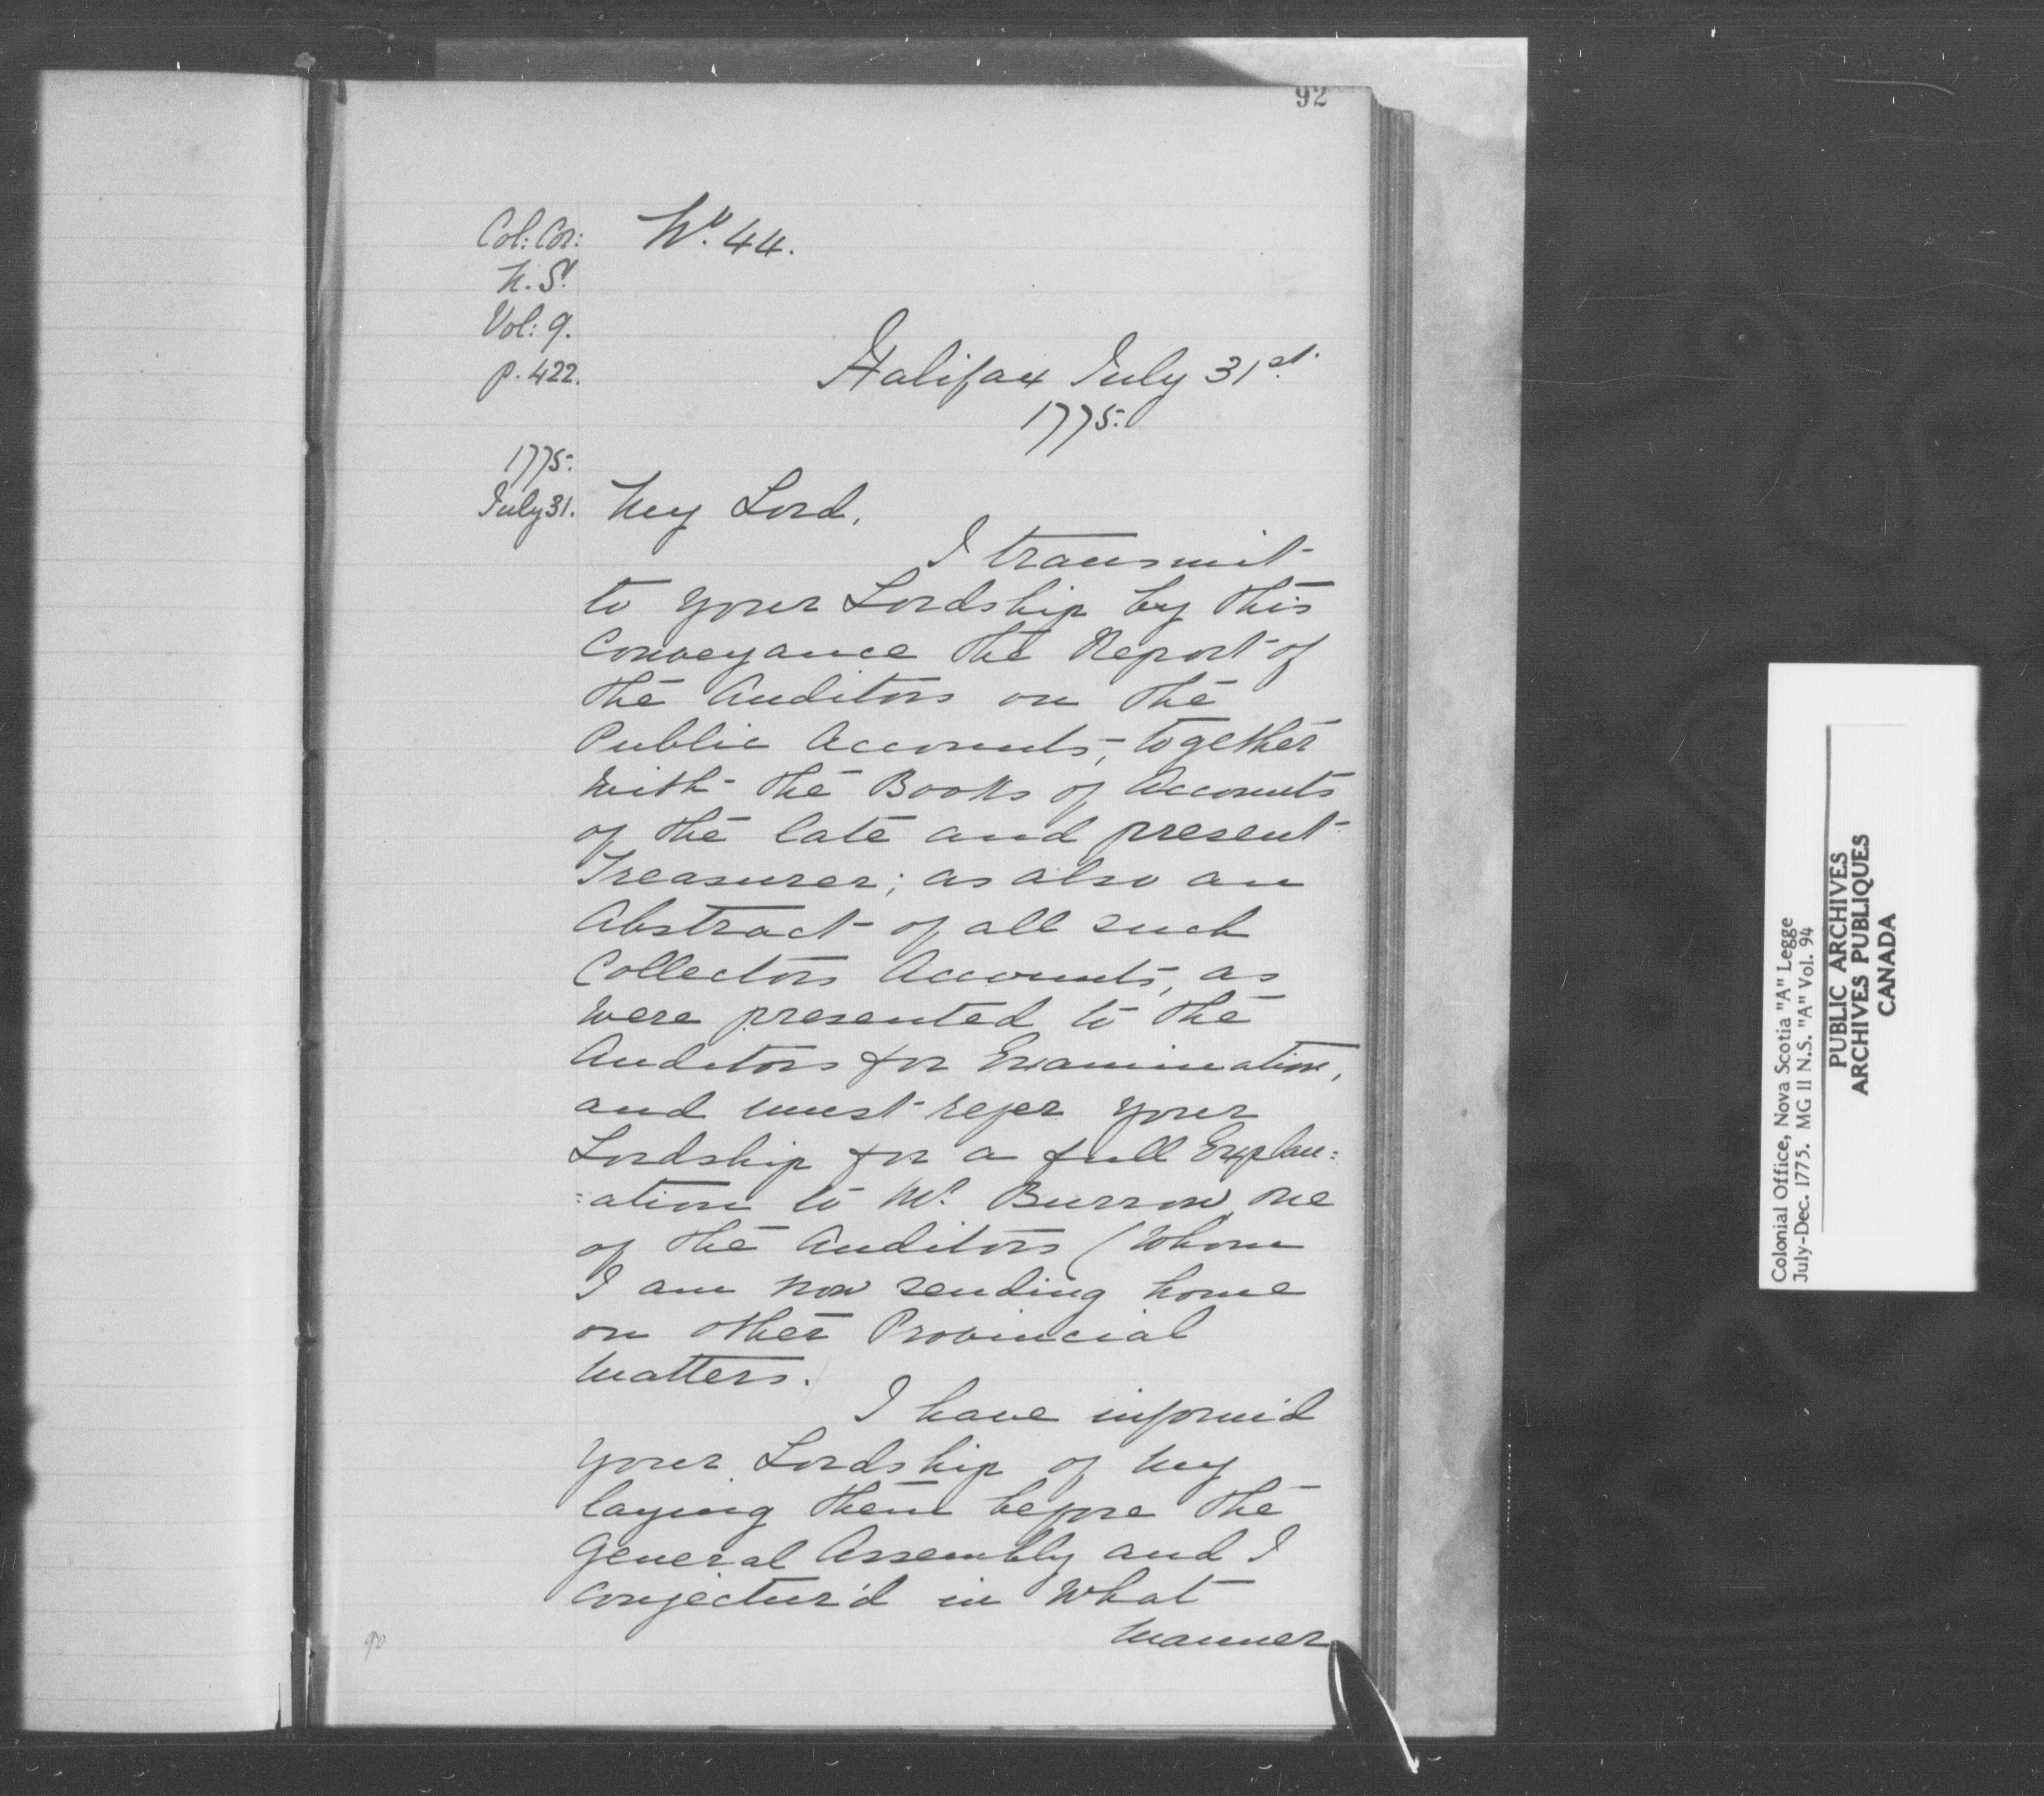 92
Col: Cor:
N. S.
Vol: 9.
p. 422.
No. 44.
Halifax July 31st.
1775.
1775.
July 31.
My Lord,
I transmit
to your Lordship by this
Conveyance the Report of
the Auditors on the
Public Accounts, together
with the Books of Accounts
of the late and present
Treasurer; as also an
Abstract of all such
Collectors Accounts, as
were presented to the
Auditors for Examination,
and must refer your
Lordship for a full Explan:
:ation to Mr. Burrow one
of the Auditors (whom
I am now sending home
on other Provincial
matters.)
I have inform'd
your Lordship of my
laying them before the
General Assembly and I
conjectur'd in what
manner
90
Colonial Office, Nova Scotia "A" Legge
July-Dec. 1775. MG II N.S. "A" Vol. 94
PUBLIC ARCHIVES
ARCHIVES PUBLIQUES
CANADA